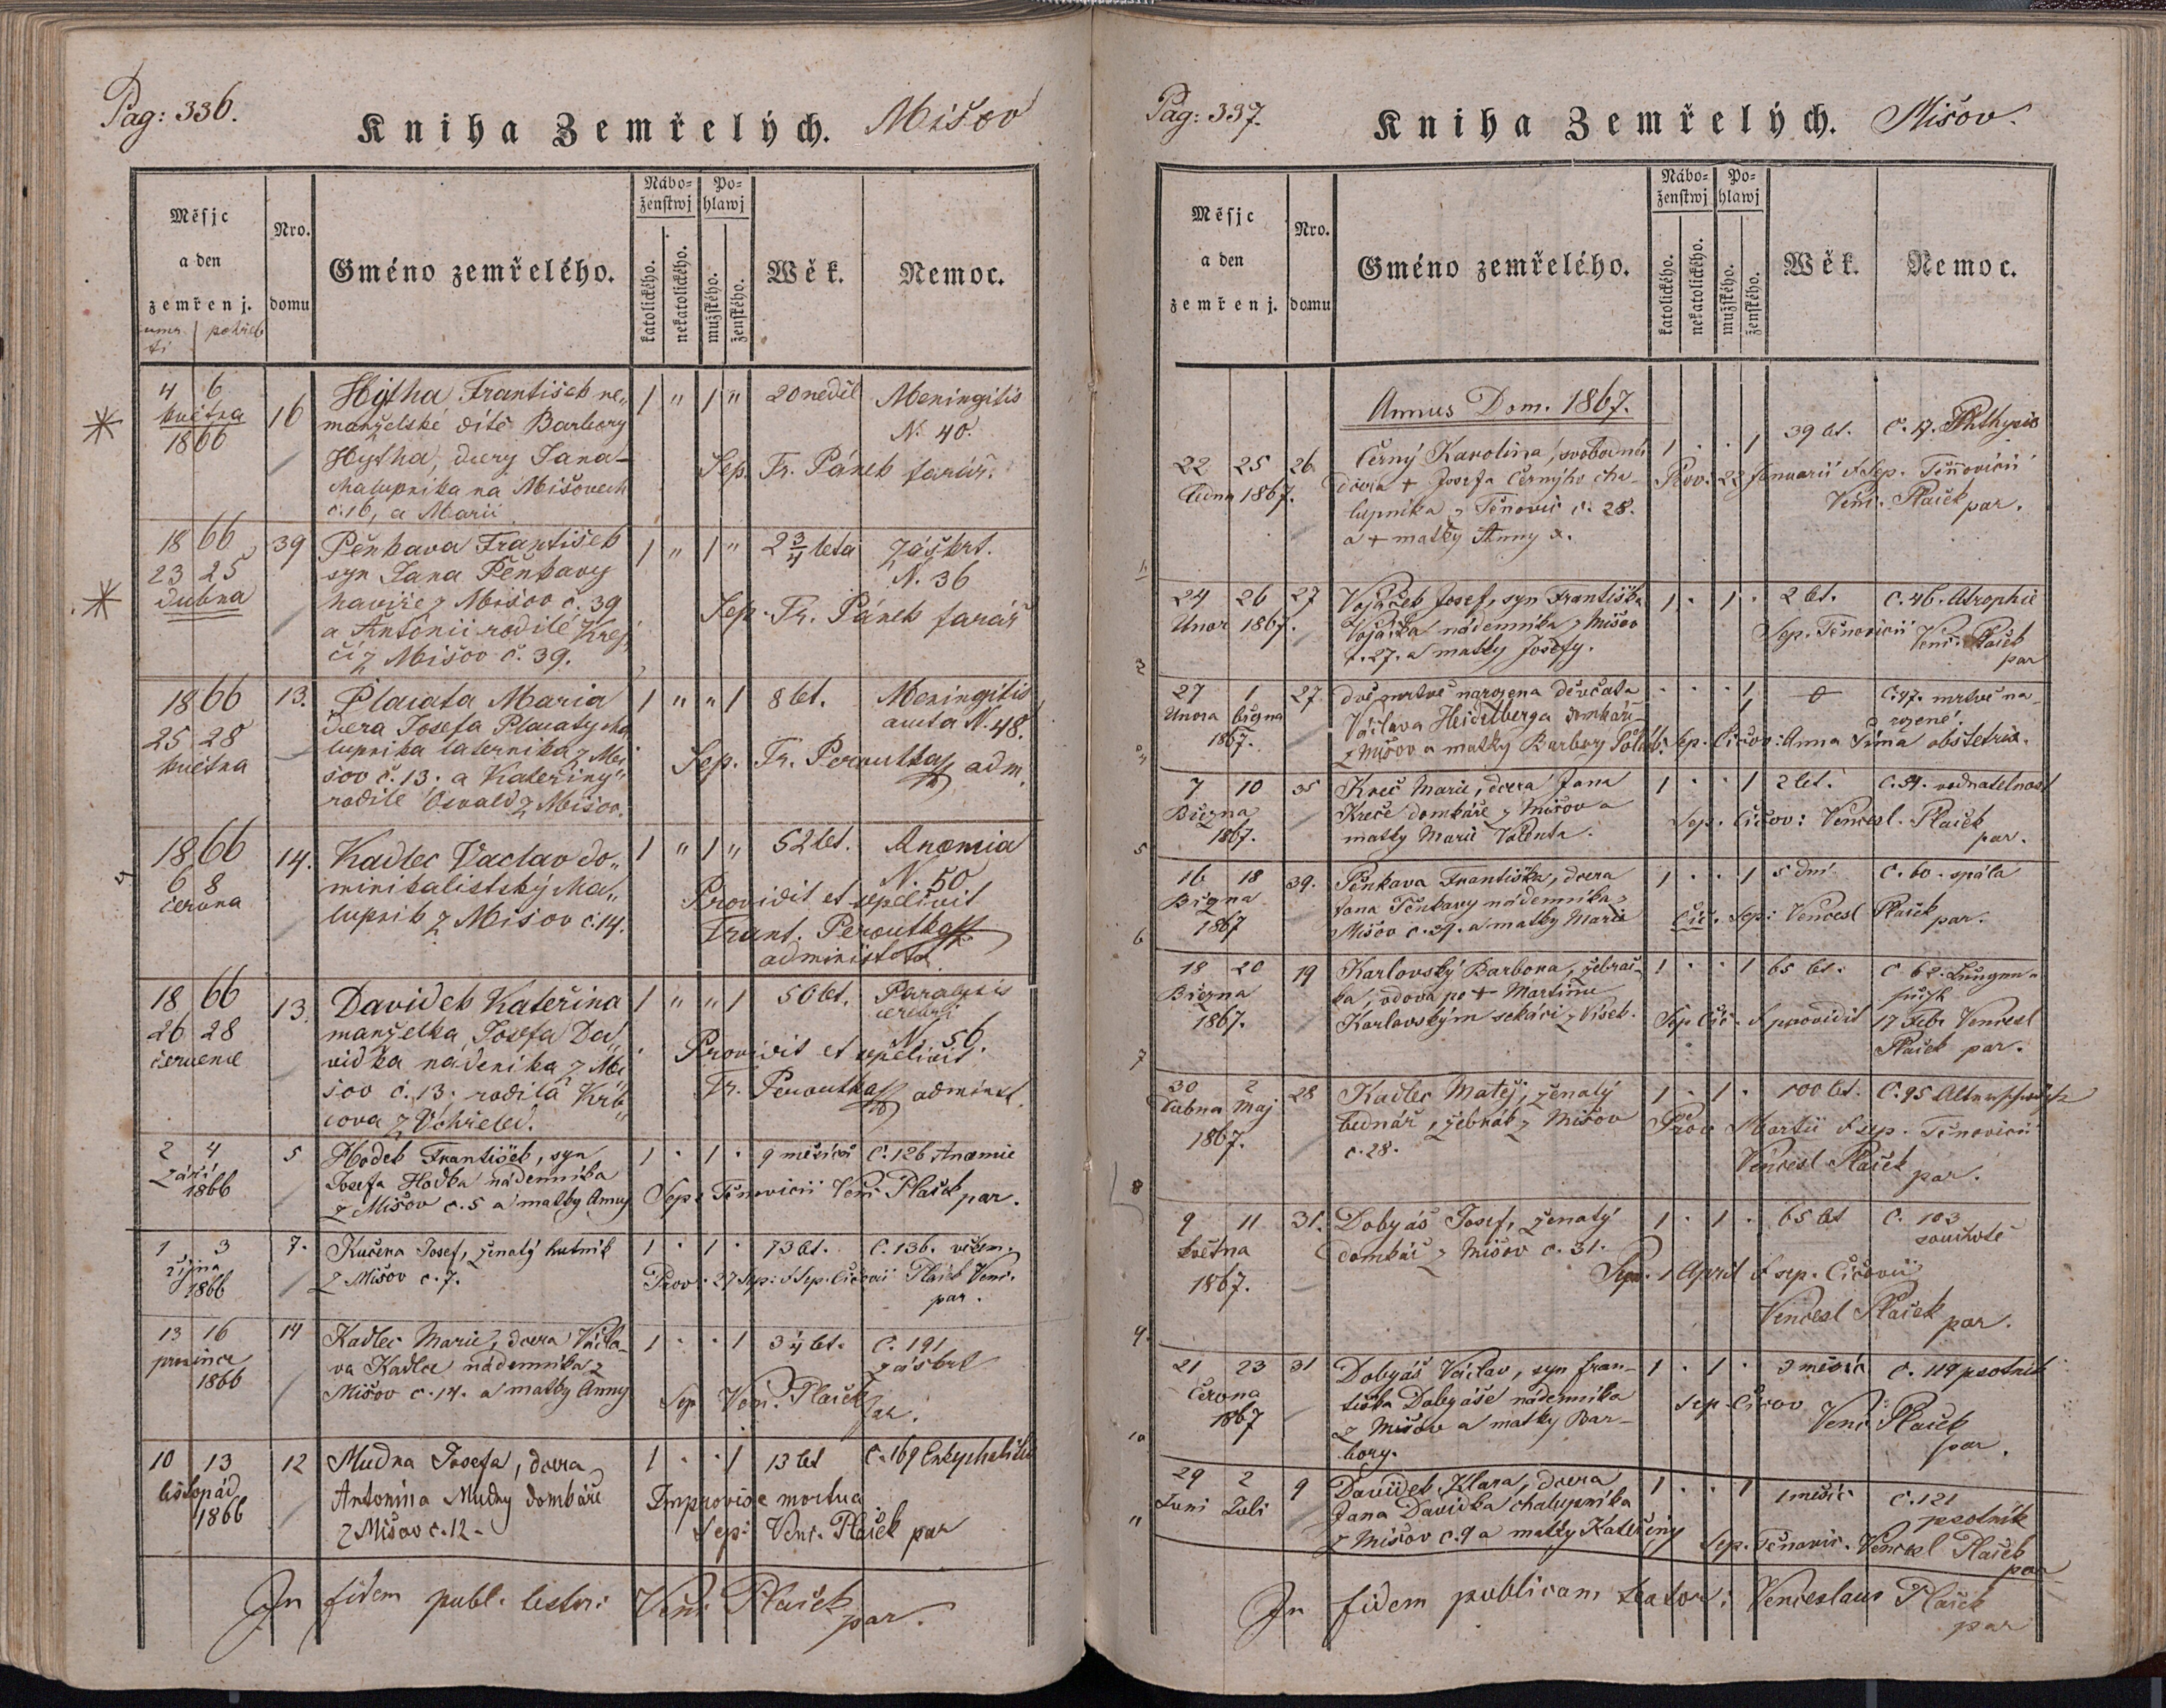 Pag: 336.
Kniha Zemřelých. Mišov
Měsjc a den zemřenj.
Nro. domu
Gméno zemřelého.
Nábo=ženstwj
katolického.
nekatolického.
Po=hlawj
mužského.
ženského.
Wěk.
Nemoc.
umr- ti potřeb
4 6 16 Hytha František ne„ 1 " 1 " 20 neděl Meningitis
května manželské dítě Barbory N. 40.
1866 Hytha, dcery Jana Sep. Fr. Pánek farář.
chalupníka na Mišovech
č. 16, a Marii
1866 39 Pěnkava František 1 " 1 " 2 3/4 leta záškrt.
23 25 syn Jana Pěnkavy N. 36
dubna havíře z Mišov č. 39 Sep. Fr. Pánek farář
a Antonii rodilé Krej
čí z Mišov č. 39.
1866 13. Placata Maria 1 " " 1 8 let. Meningitis
dcera Josefa Placaty cha acuta N. 48.
25 28 lupníka laterníka z Mi
května šov č. 13. a Kateřiny Sep. Fr. Peroutka adm.
rodilé Osvald z Mišov.
1866 14. Kadlec Vaclav do„ 1 " 1 " 52 let. Anæmia
6 8 minikalistský cha„ N. 50
června lupník z Mišov č. 14. Providit et sepelivit
Frant. Peroutka
administrator
1866 13. Davídek Kateřina 1 " " 1 50 let. Paralysis
26 28 manželka Josefa Da„ cerebri
července vídka nadeníka z Mi N. 56.
šov č. 13; rodilá Krb Providit et sepelivit
cova z Vohřeled. Fr. Peroutka administ.
2 4 5 Hodek František, syn 1 . 1 . 9 měsíců C. 126 Anæmie
Září Josefa Hodka nádenníka
1866 z Mišov č. 5 a matky Anny Sep: Těnovicii Venc. Plaček par.
1 3 7. Kučera Josef, ženatý hutník 1 . 1 . 73 let. C. 136.
října z Mišov č. 7. Prov. 27 Sep: & Sep. Čičovii Plaček Venc.
1866 par.
13 16 14 Kadlec Marie, dcera Václa- 1 . . 1 3 1/4 let. C. 191
prosince va Kadlce nádenníka z záškrt
1866 Mišov č. 14. a matky Anny Sep Venc. Plaček par.
10 13 12 Mudra Josefa, dcera 1 . . 1 13 let C. 169 Enkephalitis
listopád Antonína Mudry domkáře Improvise mortua
1866 z Mišov č. 12. Sep: Venc. Plaček par
In fidem publ. testor: Venc. Plaček
par.
Pag: 337.
Kniha Zemřelých. Mišov.
Měsjc a den zemřenj.
Nro. domu
Gméno zemřelého.
Nábo=ženstwj
katolického.
nekatolického.
Po=hlawj
mužského.
ženského.
Wěk.
Nemoc.
Annus Dom. 1867.
22 25 26 Černý Karolina, svobodná 1 . . 1 39 let. C. 17. Phthysis
ledna 1867. dcera + Josefa Černýho cha- Prov: 22 Januarii & Sep. Těnovicii
lupníka z Těnovic č. 28. Venc. Plaček par.
a + matky Anny
1.
24 26 27 Vojáček Josef, syn Františka 1 . 1 . 2 let. C. 46. Atrophie
Únor 1867. Vojáčka nádenníka z Mišov Sep. Těnovicii Venc. Plaček
č. 27. a matky Josefy. par
2
27 1 27. dvě mrtvě narozena děvčata . . . 1 1 0 C. 47. mrtvě na
Února března Václava Heidelberga domkáře rozené.
1867. z Mišov a matky Barbory Sep. Čičov: Anna Šíma obstetrix.
7 10 35 Kreč Marie, dcera Jana 1 . . 1 2 let. C. 54. vodnatelnost
Března Kreče domkáře z Mišov a Sep. Čičov: Vencesl. Plaček
1867. matky Marie Valenta. par.
5
16 18 39. Pěnkava Františka, dcera 1 . . 1 5 dní C. 60. spála
Března Jana Pěnkavy nádenníka z Čič. Sep: Vencesl Plaček
1867 Mišov č. 39. a matky Marie par.
6
18 20 19 Karlovský Barbora, žebrač- 1 . . 1 65 let. C. 62. Lungen-
Března ka, vdova po + Martinu sucht
1867. Karlovským sekáči z Vísek. Sep Čič. & providit 17 Febr Vencesl
Plaček par.
7
30 2 28 Kadlec Matěj, ženatý 1 . 1 . 100 let. C. 95
Dubna Maj bednář, žebrák z Mišov Prov Martii & sep. Těnovicii
1867. č. 28. Vencesl Plaček par.
8
9 11 31. Dobyáš Josef, ženatý 1 . 1 . 65 let C. 103
Května domkář z Mišov č. 31. souchotě
1867. 1 April & sep. Čičovii
Vencesl Plaček par.
9.
21 23 31 Dobyáš Václav, syn Fran- 1 . 1 . 3 měsíce C. 119 psotník
Června tiška Dobyáše nádenníka Sep Čičov
1867 z Mišov a matky Bar- Venc. Plaček
bory. par.
10
29 2 9 Davídek Klara, dcera 1 . . 1 1 měsíc C. 121
Juni Juli Jana Davídka chalupníka psotník
z Mišov č. 9 a matky Kateřiny Sep. Těnovic. Vencesl Plaček
11 par
In fidem publicam testor: Venceslaus Plaček
par